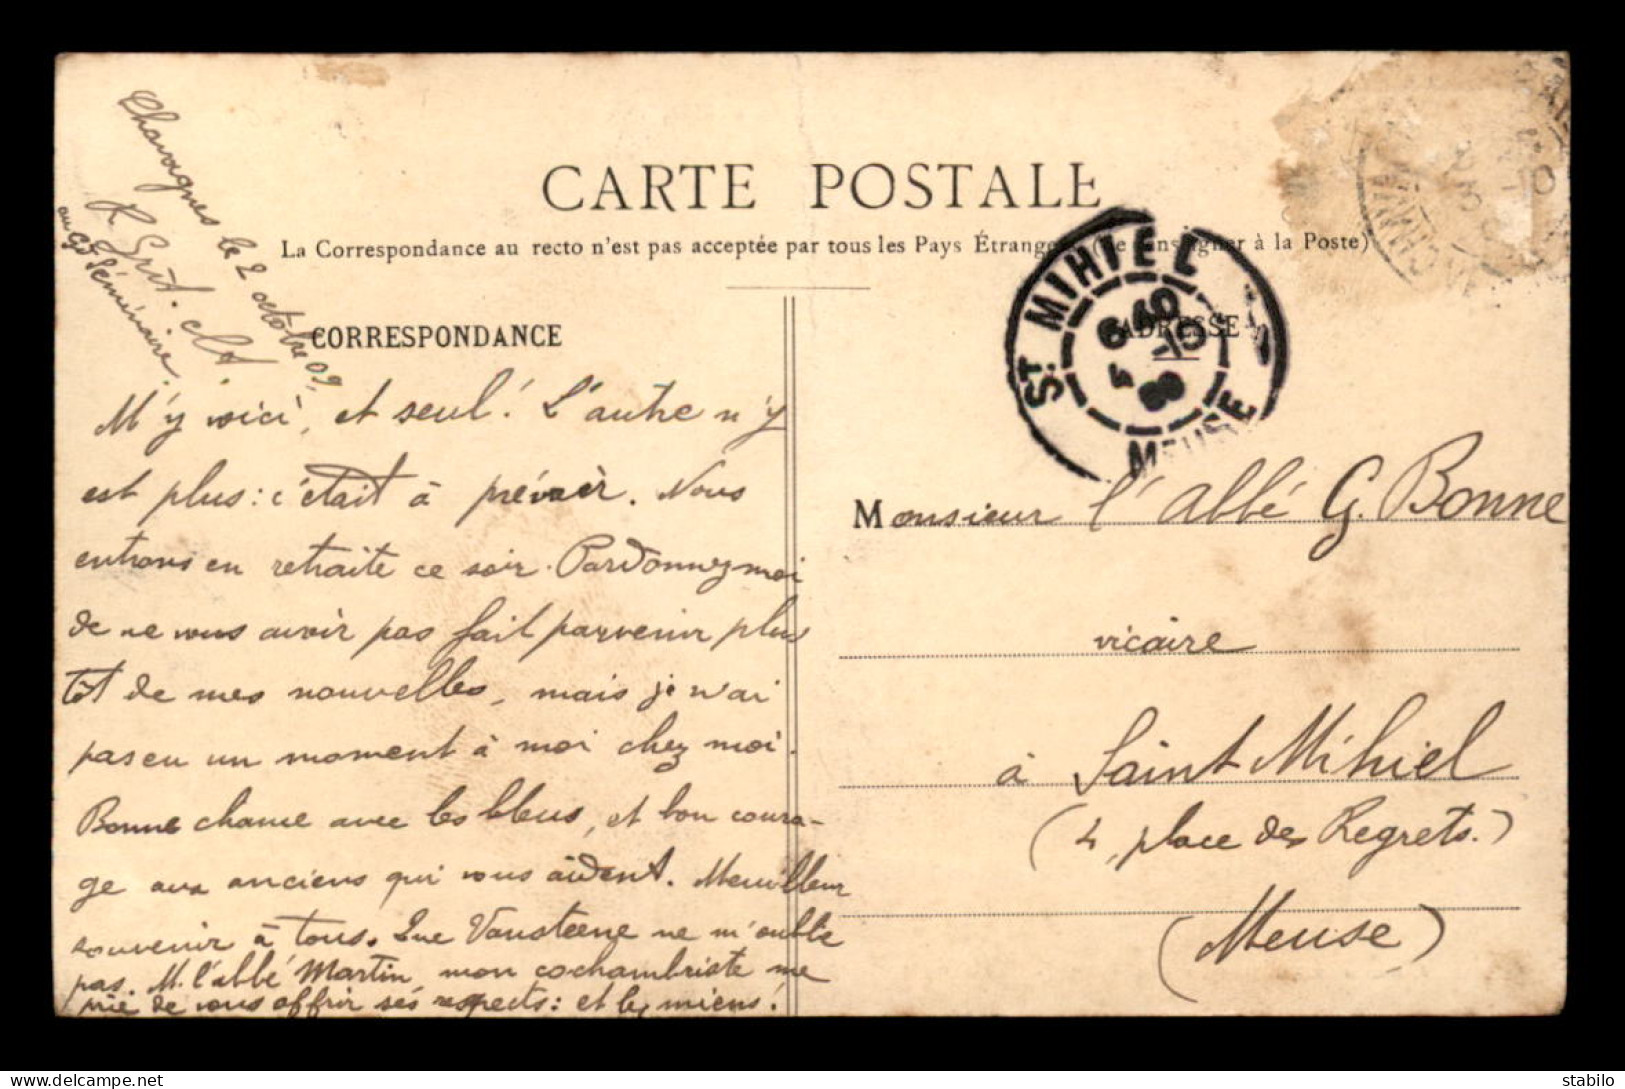 CARTE POSTALE
La Correspondance au recto n'est pas acceptée par tous les Pays Étrangers (Se renseigner à la Poste)
CORRESPONDANCE
ADRESSE
le 2 octobre 09.
au Gd Séminaire
M'y voici, et seul! L'autre n'y
est plus: c'était à prévoir. Nous
entrons en retraite ce soir. Pardonnez moi
de ne vous avoir pas fait parvenir plus
tôt de mes nouvelles, mais je n'ai
pas eu un moment à moi chez moi.
Bonne chance avec les bleus, et bon coura-
ge aux anciens qui vous aident. Meuilleur
souvenir à tous. Que Vansteene ne m'oublie
pas. M. l'abbé Martin, mon cochambriste me
prie de vous offrir ses respects: et les miens!
ST MIHIEL
6 40
-10
09
MEUSE
Monsieur l'abbé G. Bonne
vicaire
à Saint Mihiel
(4, place des Regrets.)
(Meuse)
stabilo